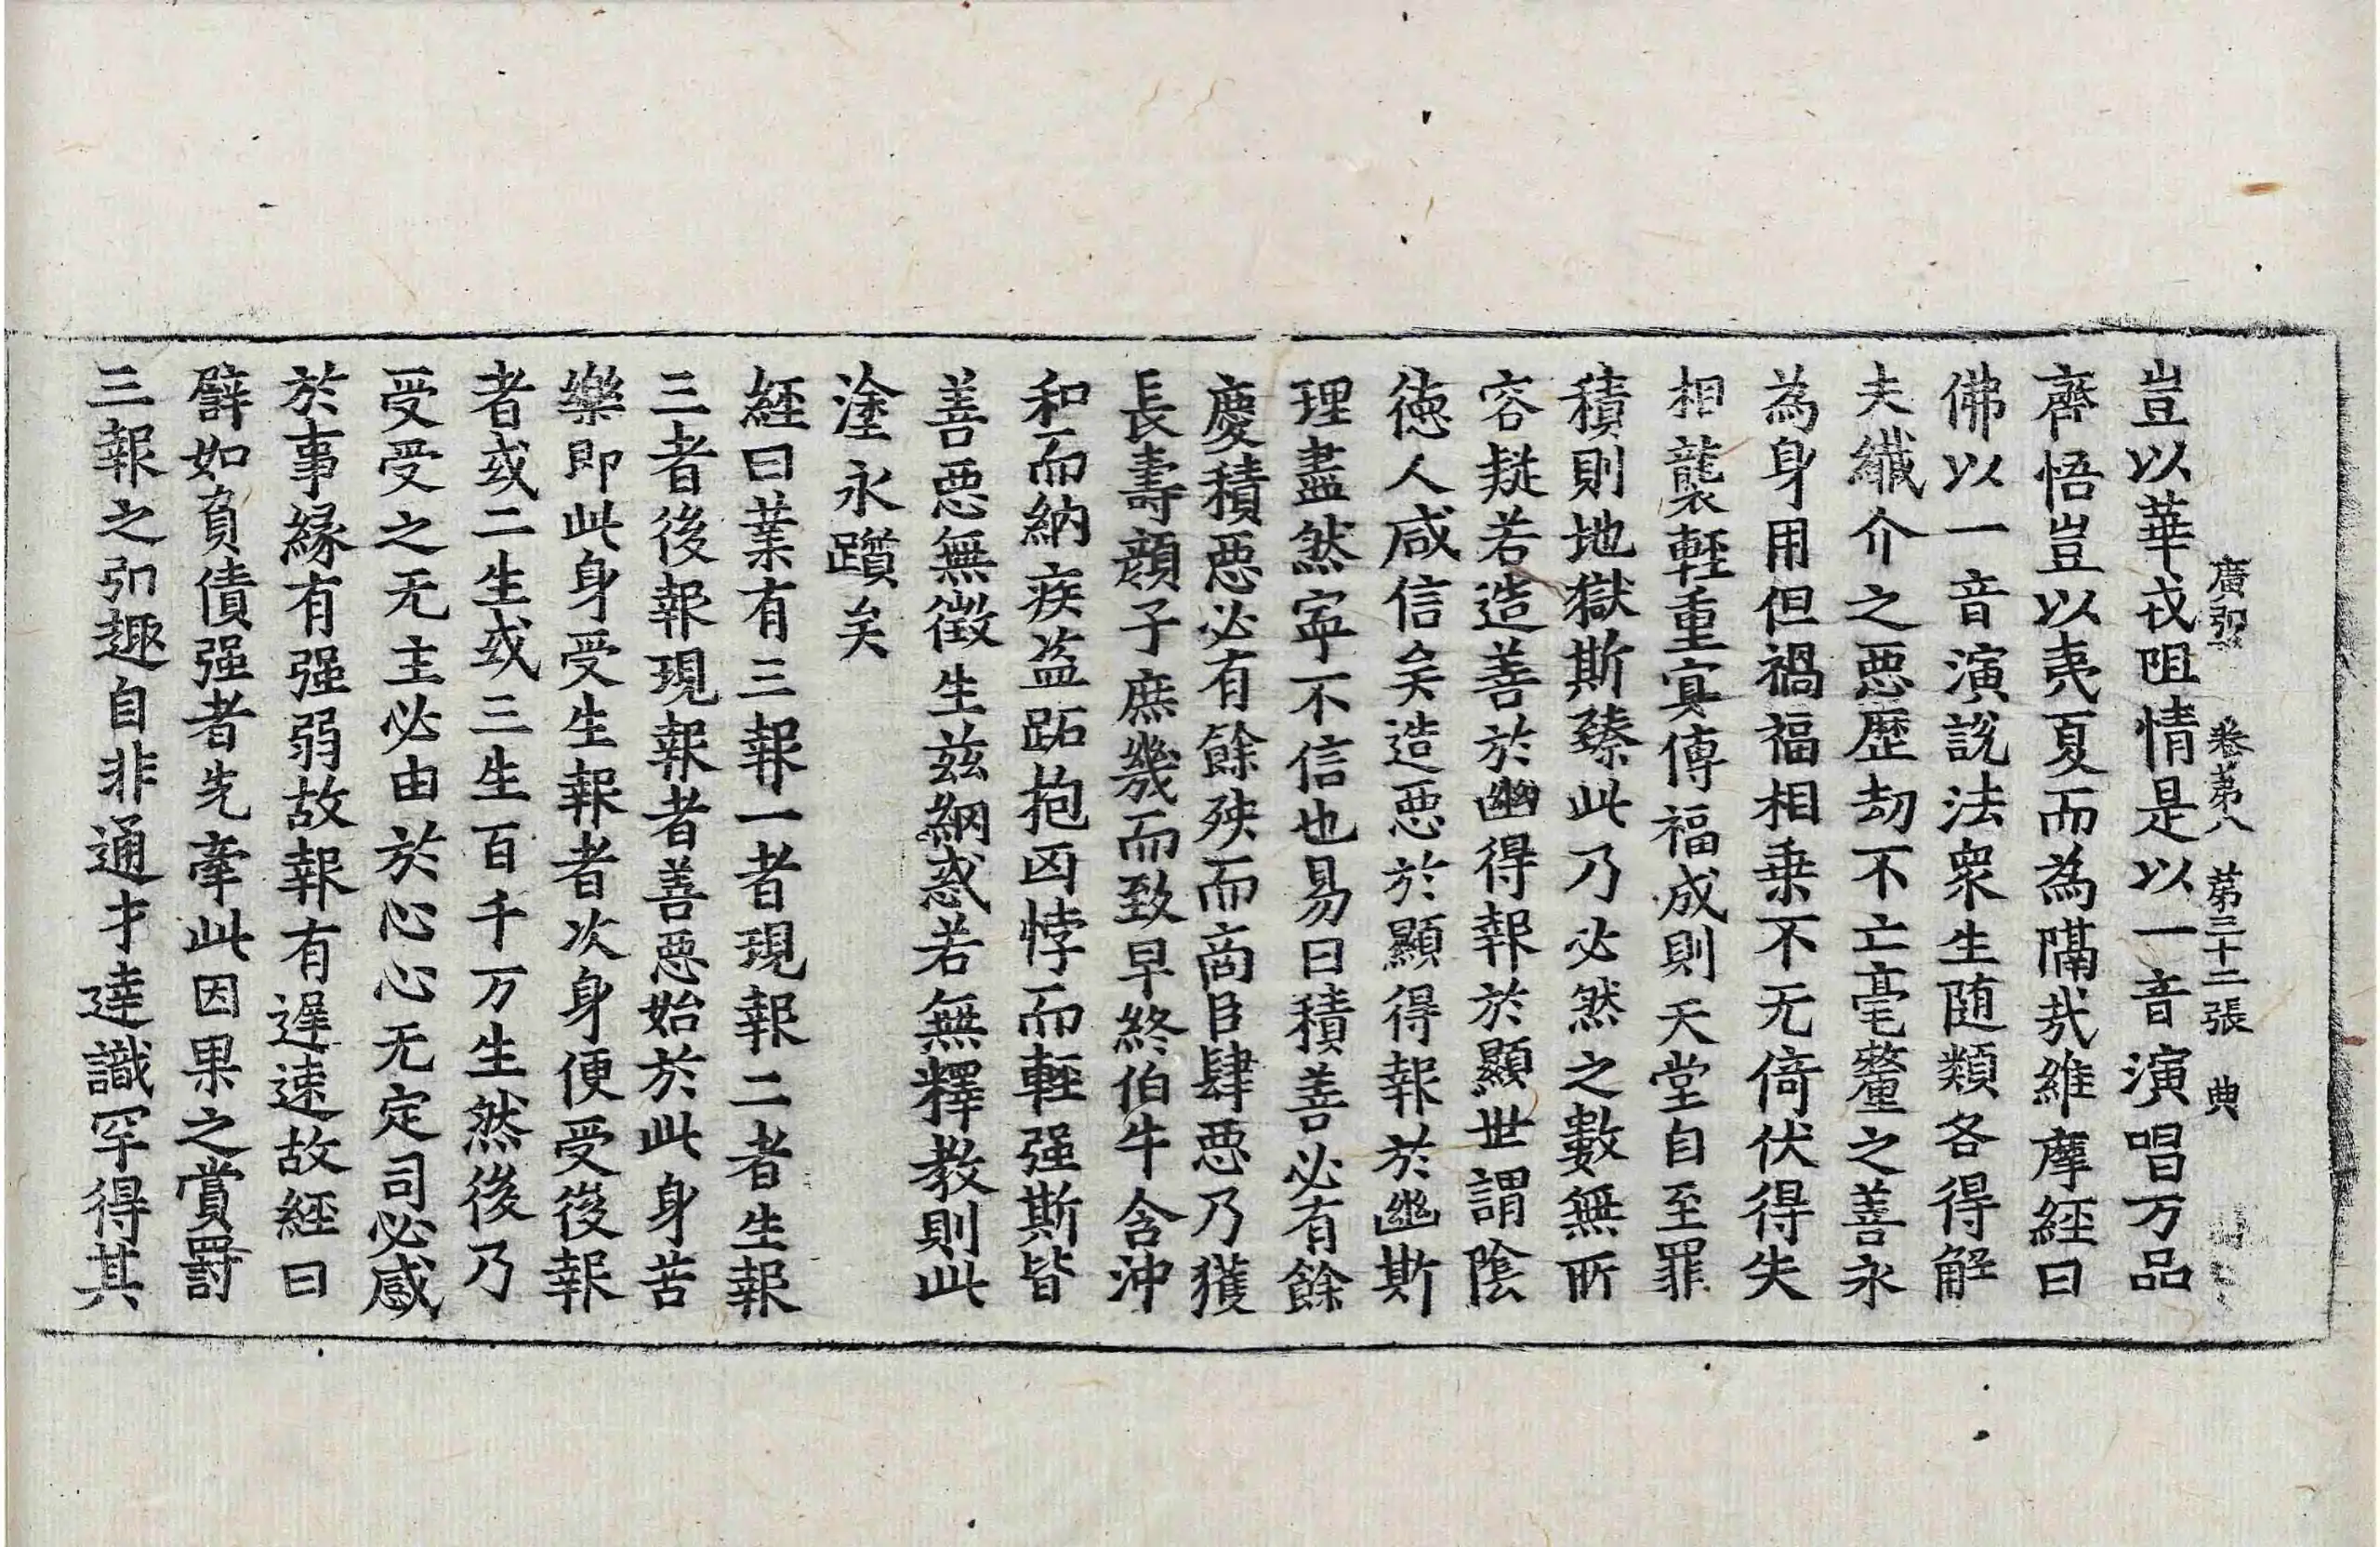 廣弘 卷第八 第三十二張 典
豈以華戎阻情是以一音演唱万品
齊悟豈以夷夏而為隔哉維摩經曰
佛以一音演說法衆生随類各得解
夫纖介之惡歷劫不亡毫釐之善永
為身用但禍福相乗不无倚伏得失
相襲輕重冥傳福成則天堂自至罪
積則地獄斯臻此乃必然之數無所
容疑若造善於幽得報於顯世謂陰
徳人咸信矣造惡於顯得報於幽斯
理盡然寧不信也易曰積善必有餘
慶積惡必有餘殃而商臣肆惡乃獲
長壽顔子庶幾而致早終伯牛含沖
和而納疾盗跖抱凶悖而輕强斯皆
善惡無徵生兹網惑若無釋教則此
塗永躓矣
經曰業有三報一者現報二者生報
三者後報現報者善惡始於此身苦
樂即此身受生報者次身便受後報
者或二生或三生百千万生然後乃
受受之无主必由於心心无定司必感
於事緣有强弱故報有遲速故經曰
譬如負債强者先牽此因果之賞罰
三報之弘趣自非通才達識罕得其